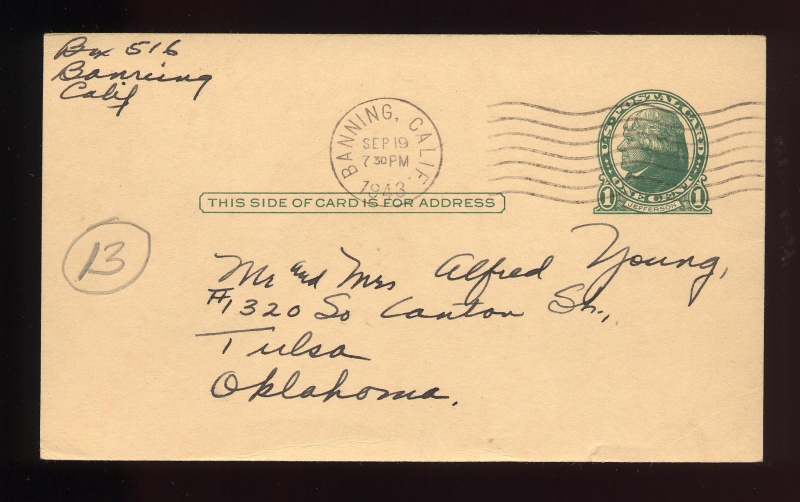 Box 516
Banning
Calif
BANNING, CALIF.
SEP 19
7 30 PM
1943
U.S. POSTAL CARD
1 ONE CENT 1
JEFFERSON
THIS SIDE OF CARD IS FOR ADDRESS
13
Mr and Mrs Alfred Young,
#1320 So Canton St.,
Tulsa
Oklahoma.